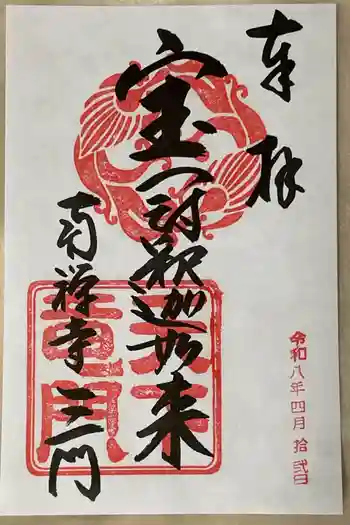 奉拝
令和八年四月拾弐日
宝冠釈迦如来
天下
竜門
南禅寺 三門